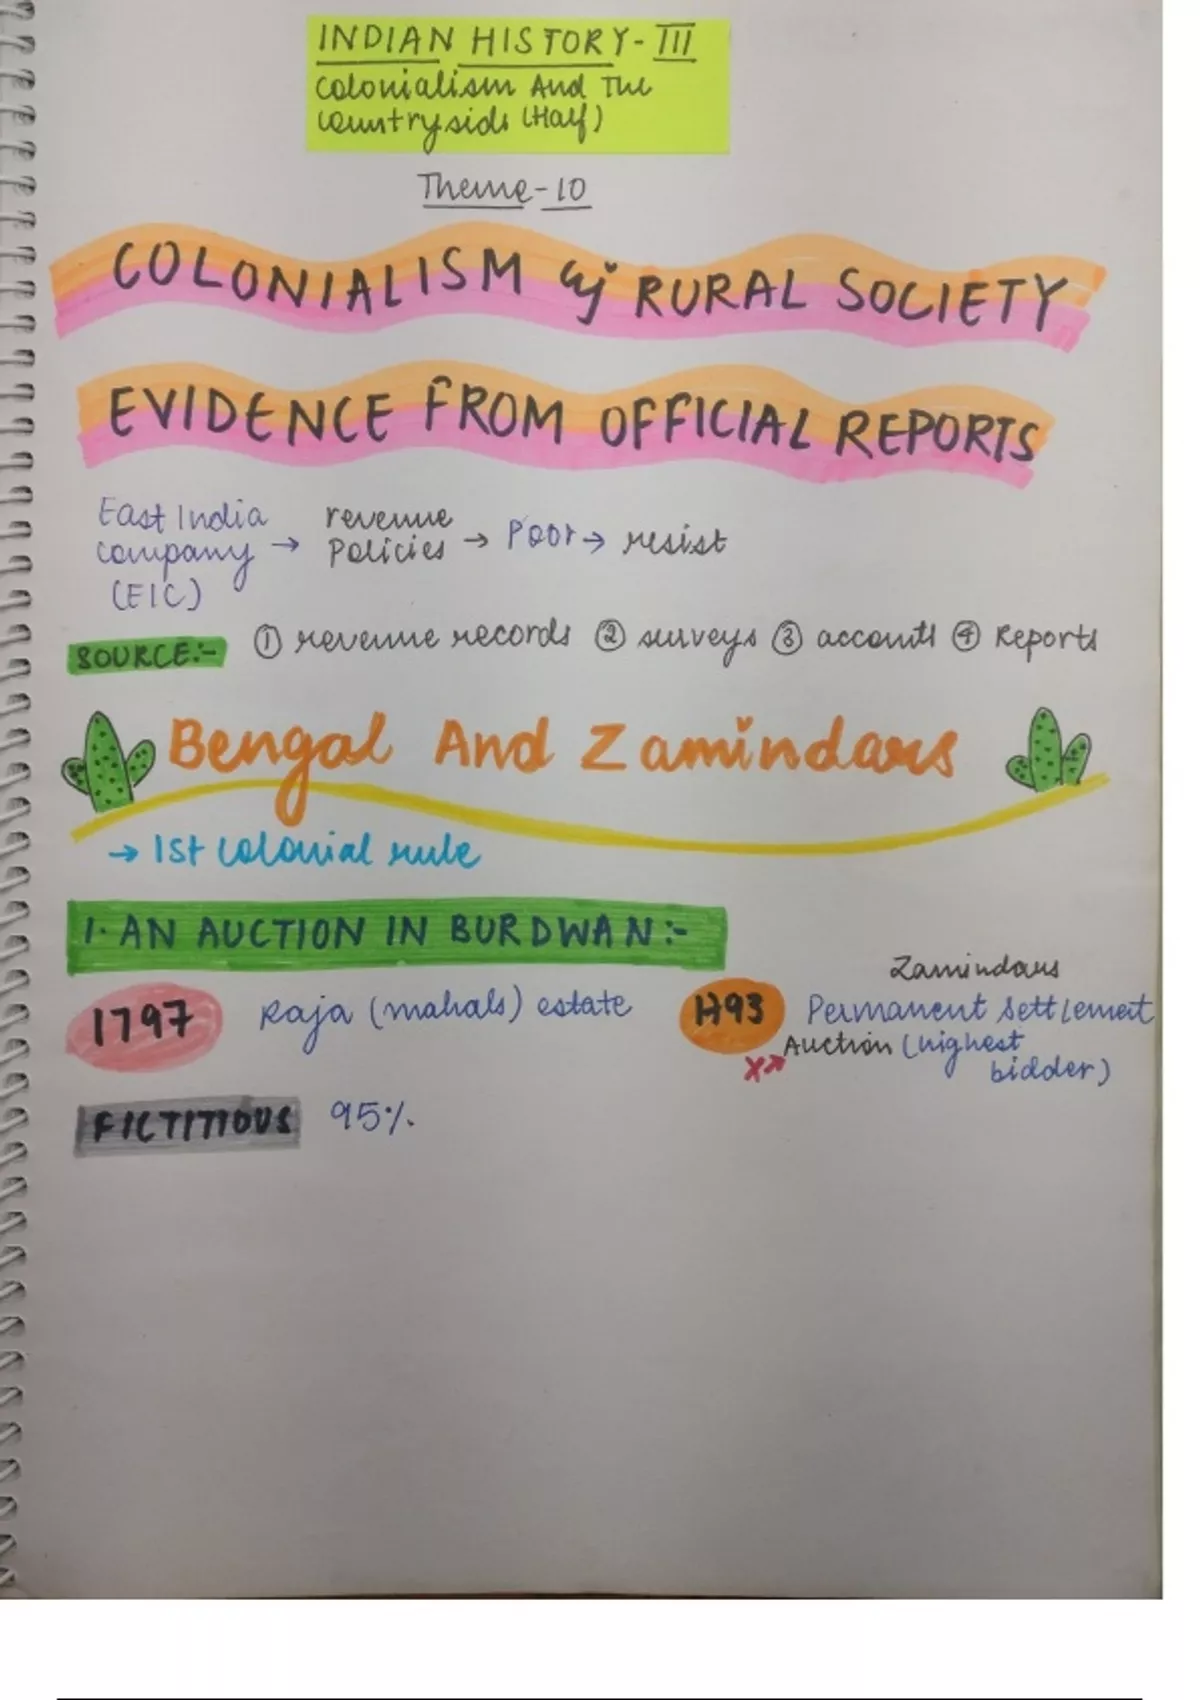 INDIAN HISTORY-III
Colonialism And The
Countryside (Half)
Theme-10
COLONIALISM & RURAL SOCIETY
EVIDENCE FROM OFFICIAL REPORTS
East India company (EIC) → revenue Policies → Poor → resist
SOURCE:- ① revenue records ② surveys ③ accounts ④ Reports
Bengal And Zamindars
→ 1st colonial rule
1. AN AUCTION IN BURDWAN:-
1797 Raja (mahals) estate
Zamindars
1793 Permanent settlement
X→ Auction (highest
bidder)
FICTITIOUS 95%.